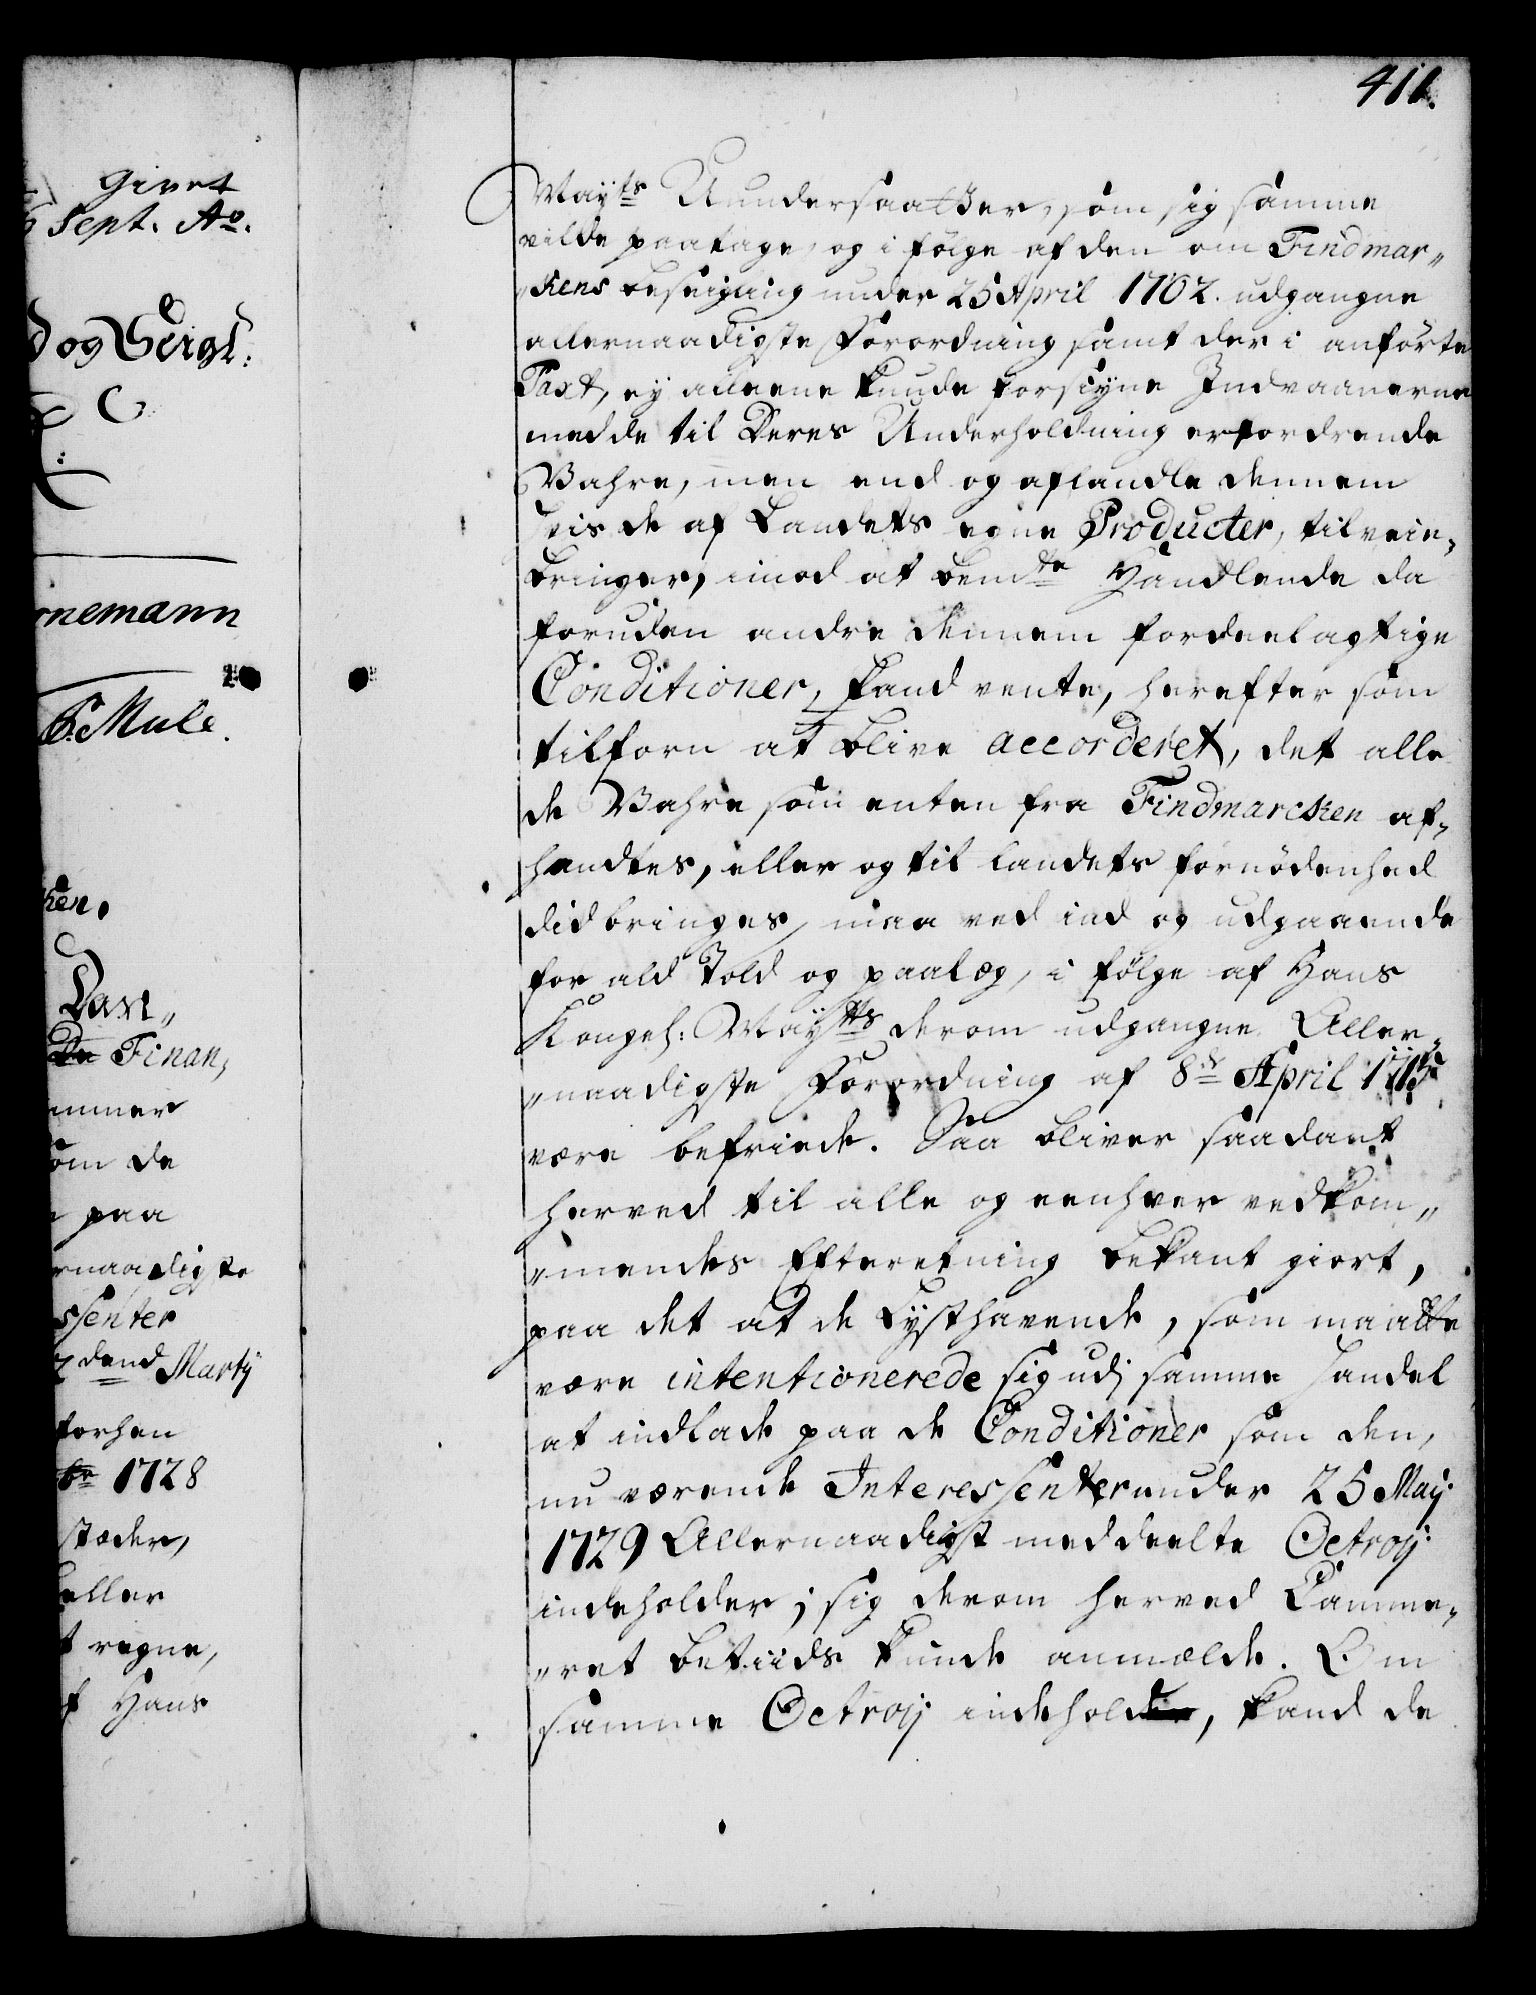 Givet
Sept. Ao.
og Bergl:
C
rnemann
C. Mule.
ken.
Dan„
De Finan,
ammer
som de
paa
rnaadigste
ssenter
dend Martij
forhen
br 1728
stæder,
eller
t regne,
f Hans
411.
Mayts Undersaatter, som sig samme
vilde paatage, og i følge af den om Findmar„
„kens beseigling under 25 April 1702. udgangne
allernaadigste Forordning samt der i anførte
Taxt, ey alleene kunde forsiyne Indvaanerne
med de til Deres Underholdning erfordrende
Vahre, men end og afhandle dennem
hvis de af Landets egne Producter, tilveie„
bringer, imod at bemte Handlende da
foruden andre dennem fordeelagtige
Conditioner, kand vente, herefter som
tilforn at blive accorderet, det alle
de Vahre som enten fra Findmarcken af„
handles, eller og til landets fornødenhed
did bringes, maa ved ind og udgaaende
for ald Told og paalæg, i følge af Hans
Kongel: Mayts derom udgangne Aller„
„naadigste Forordning af 8de April 1715
være befriede. Saa bliver saadant
herved til alle og eenhver vedkom„
„mendes Efteretning bekant giort,
paa det at de Lysthavende, som maatte
være intentionerede sig udj samme Handel
at indlade paa de Conditioner som den,
nu værende Interessenter under 25 Maij
1729 Allernaadigst meddeelte Octroij
indeholder; sig derom herved Camme„
„ret betiids kunde anmælde. Om
samme Octroij indeholder, kand de